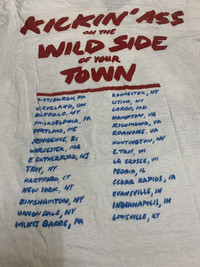 KICKIN' ASS
ON THE
WILD SIDE
OF YOUR
TOWN
PITTSBURGH, PA
CLEVELAND, OH
BUFFALO, NY
PHILADELPHIA, PA
PORTLAND, ME
PROVIDENCE, RI
WORCESTER, MA
E. RUTHERFORD, NJ
TROY, NY
HARTFORD, CT
NEW YORK, NY
BINGHAMTON, NY
UNIONDALE, NY
WILKES BARRE, PA
ROCHESTER, NY
UTICA, NY
LARGO, MD
HAMPTON, VA
RICHMOND, VA
ROANOKE, VA
HUNTINGTON, WV
E. TROY, WI
LA CROSSE, WI
PEORIA, IL
CEDAR RAPIDS, IA
EVANSVILLE, IN
INDIANAPOLIS, IN
LOUISVILLE, KY